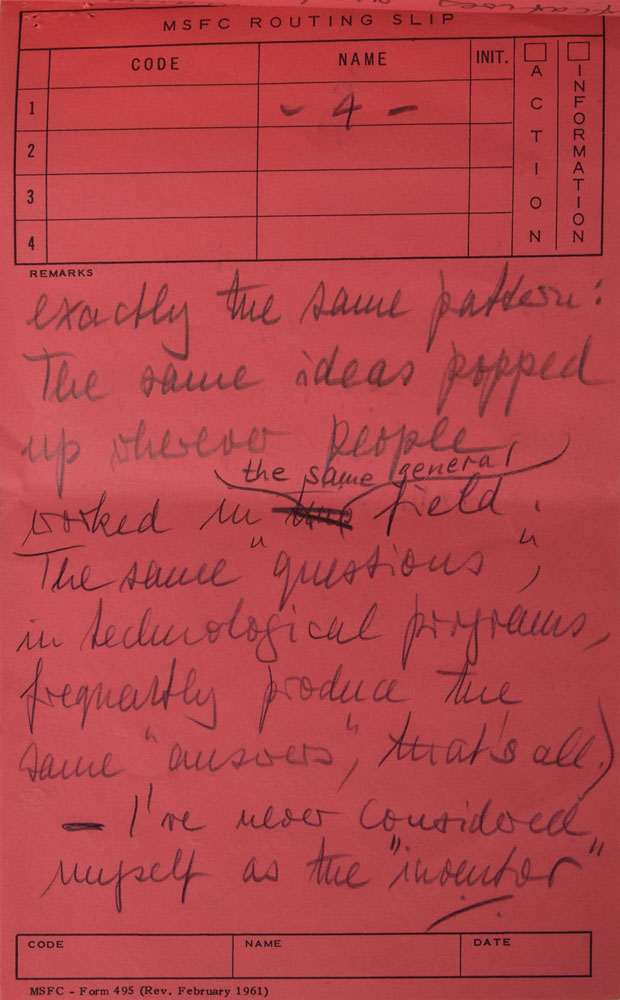 MSFC ROUTING SLIP
CODE NAME INIT. ACTION INFORMATION
1 - 4 -
2
3
4
REMARKS
exactly the same pattern:
The same ideas popped
up wherever people
the same general
worked in field.
The same "questions",
in technological programs,
frequently produce the
same "answers", that's all.)
— I've never considered
myself as the "inventor"
CODE NAME DATE
MSFC - Form 495 (Rev. February 1961)